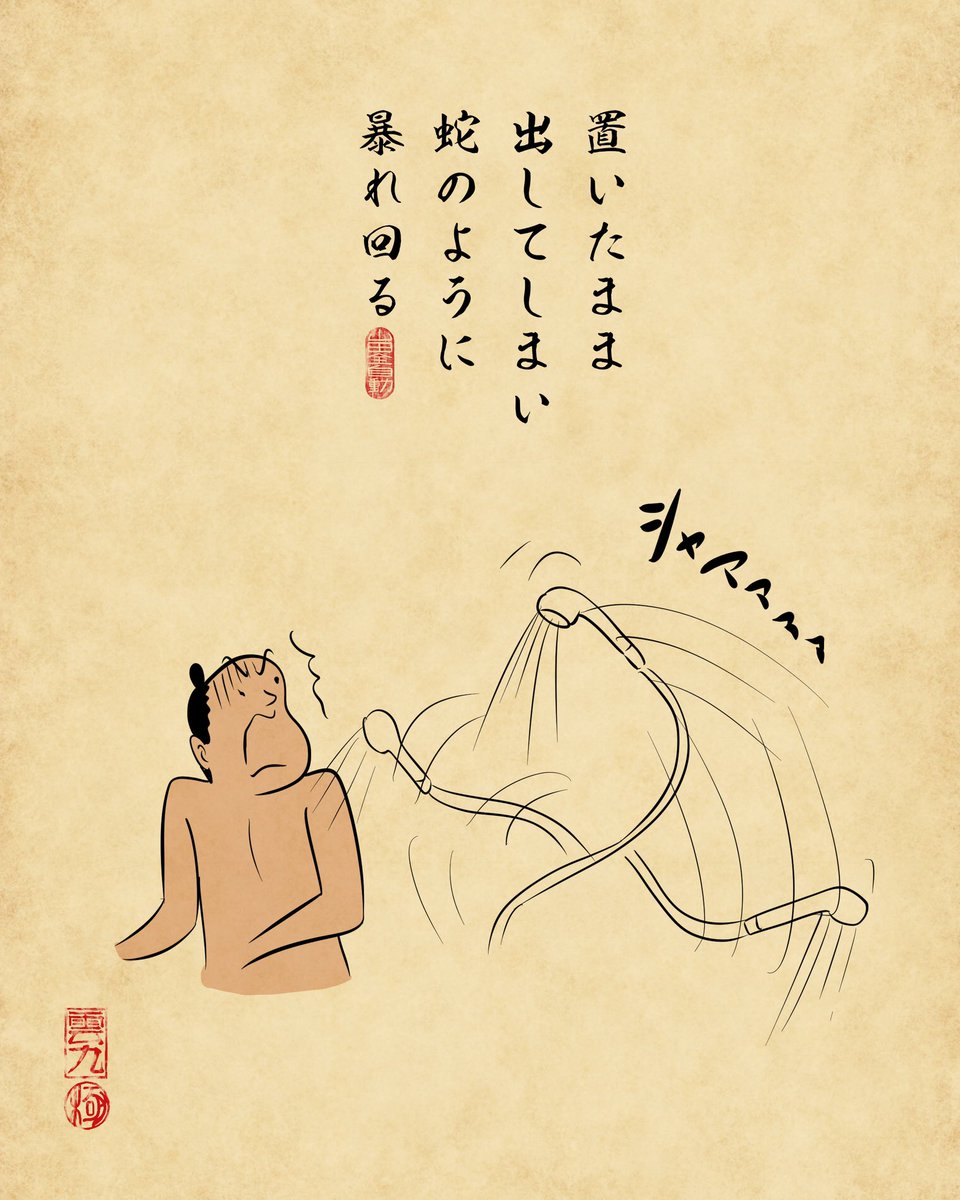 置いたまま
出してしまい
蛇のように
暴れ回る
シャアアァァ
雲九
極